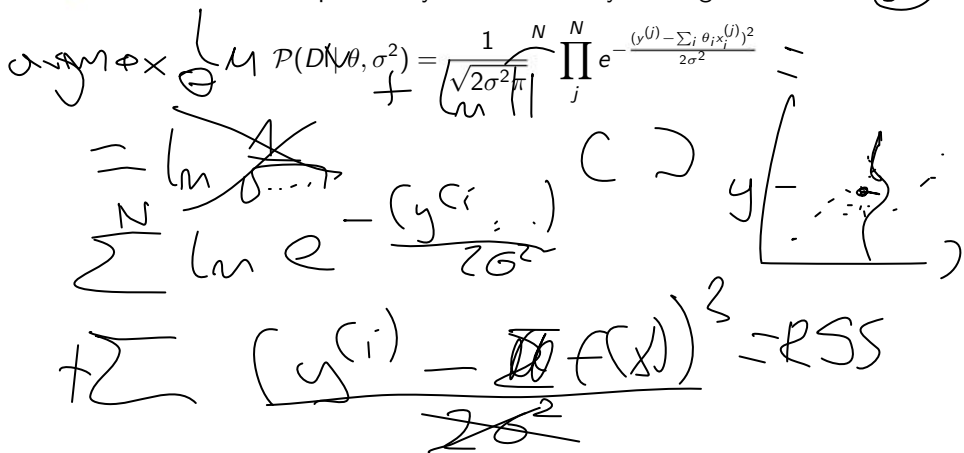 argmax_θ ln P(D|θ, σ²) = 1 / √(2σ²π)^N ∏_j^N e^{-(y^(j) - ∑_i θ_i x_i^(j))² / 2σ²} =
+ ln
= ln 1 / σ.....
( )
N ∑ ln e - (y^(i . . ) / 2σ²
y
+∑ (y^(i) - f(x))² / 2σ² = RSS